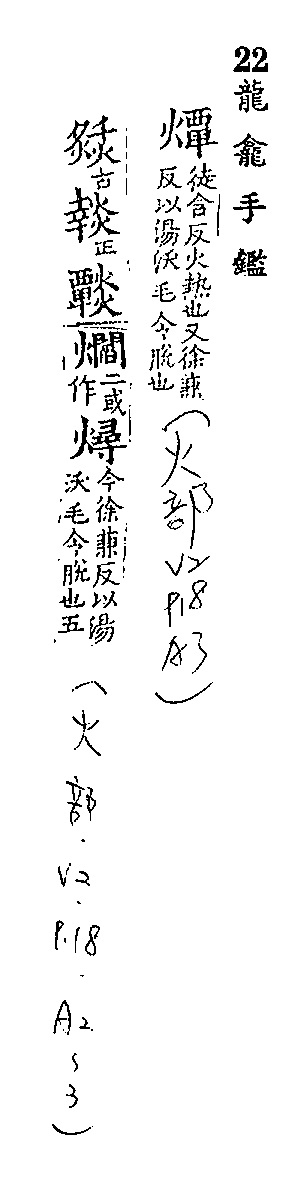 22 龍龕手鑑
燂 徒含反火熱也又徐兼反以湯沃毛令脫也 (火部 V2 P.18 A3)
古 正 燗 二或作 燖 今徐兼反以湯沃毛令脫也五 (火部.V2.P.18.A2~3)